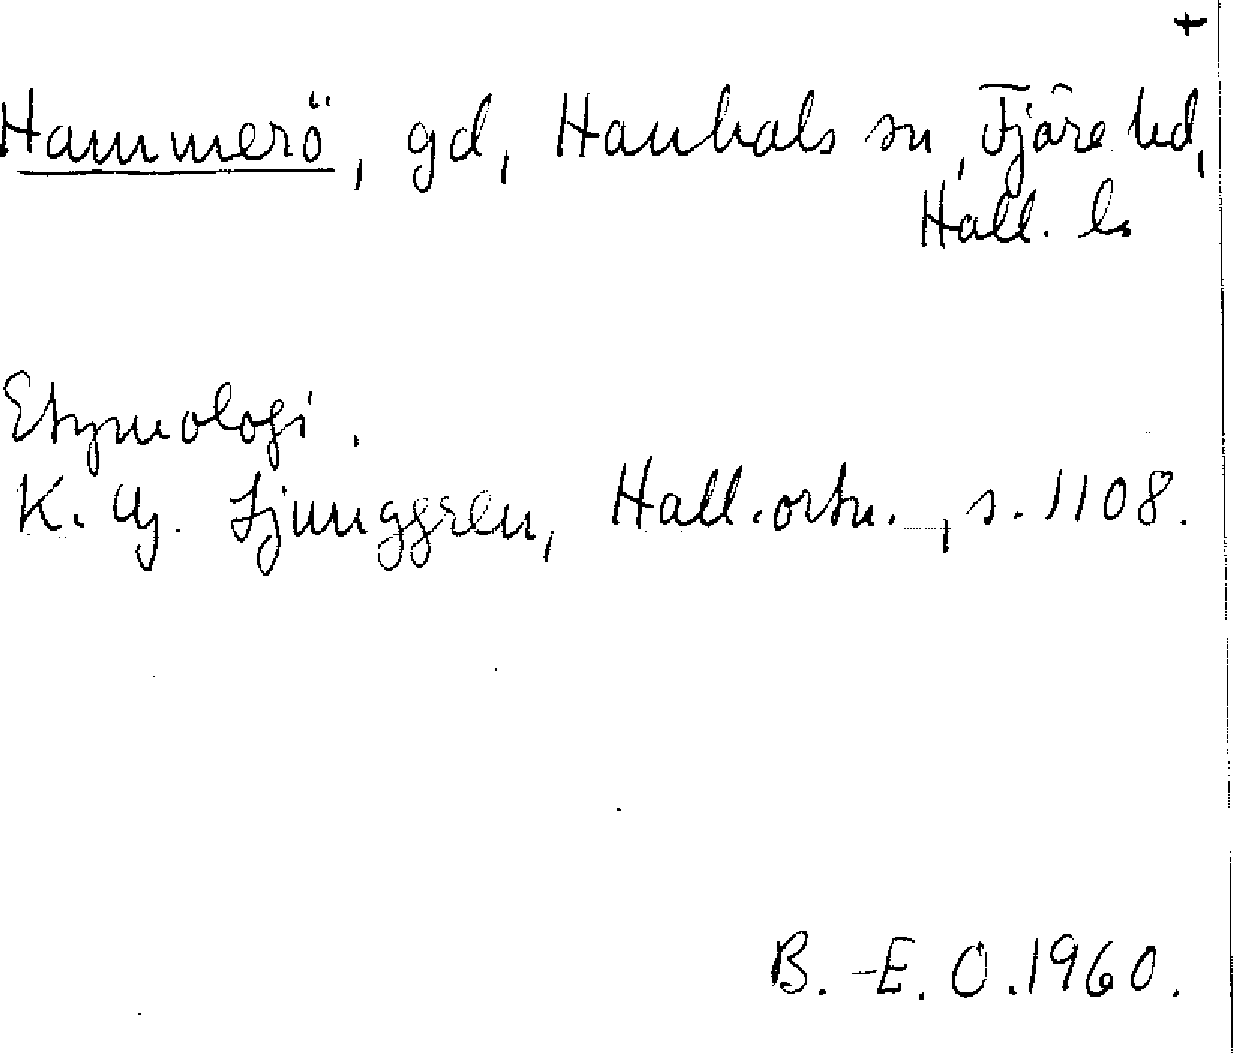 +
Hammerö, gd, Hanhals sn, Fjäre hd,
Hall. l.
Etymologi.
K. Gj. Ljunggren, Hall. ortn., s. 1108.
B.-E. O. 1960.